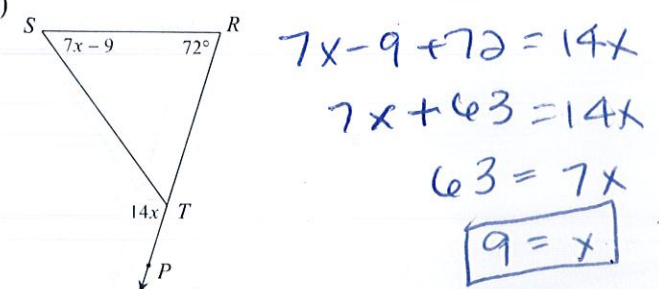 )
S R
7x – 9 72°
14x T
P
7x-9+72 = 14x
7x+63 = 14x
63 = 7x
9 = x